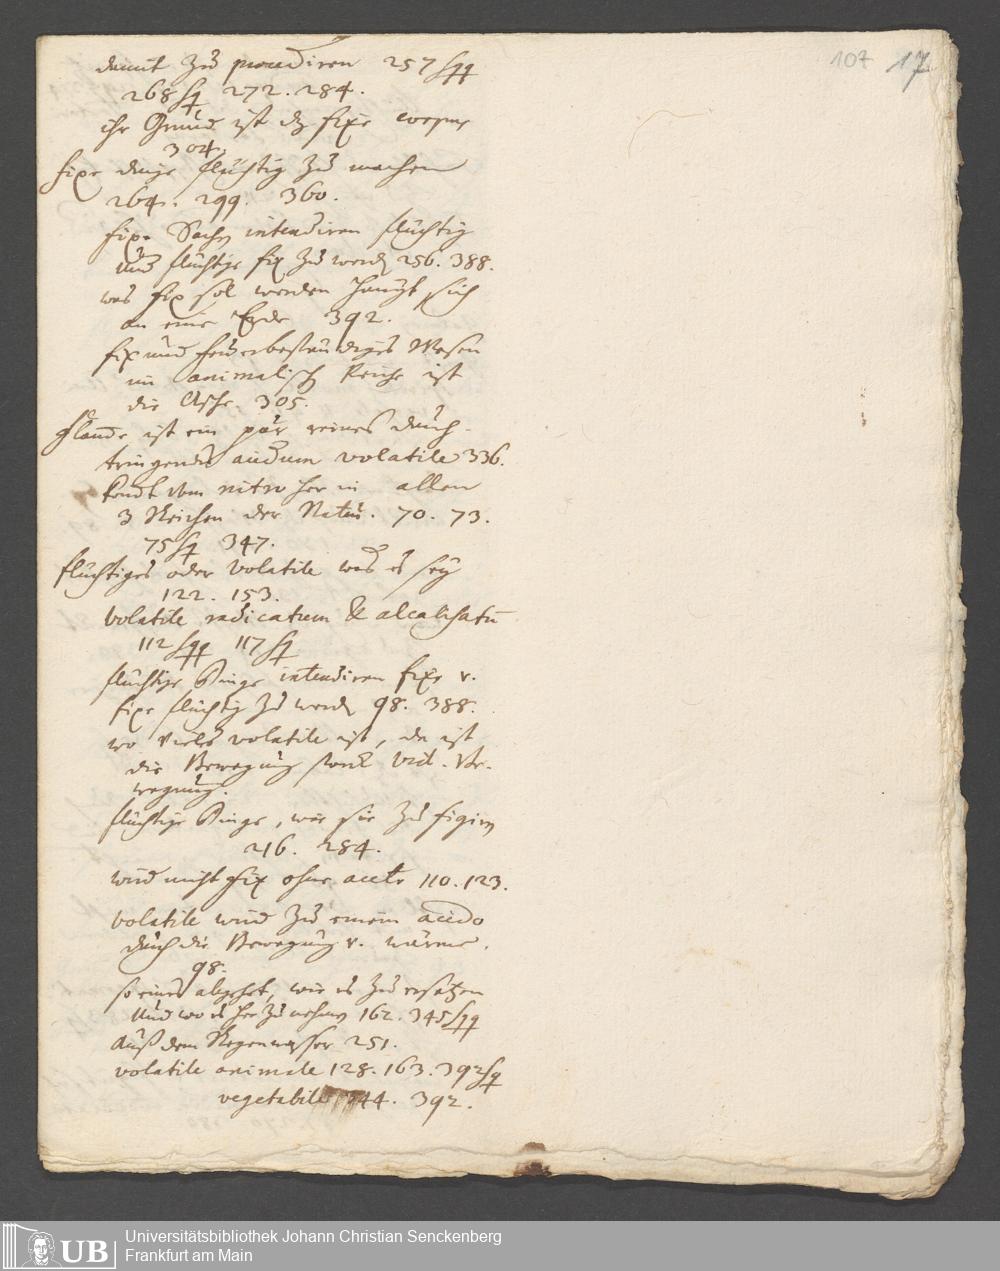 107 17
damit zu procediren 257 sqq
268 sq 272. 284.
ihr Grund ist dz fixe corpus
304.
fixe dinge flüchtig zu machen
264. 299. 360.
fixe Sachen intendiren flüchtig
und flüchtige fix zu werden 256. 388.
was fix sol werden hengt sich
an eine Erde 392.
fix und feuerbeständiges Wesen
im animalisch Reiche ist
die Asche 305.
ist ein pur reines durch-
tringendes acidum volatile 336.
kombt vom nitro her in allen
3 Reichen der Natur. 70. 73.
75 sq 347.
flüchtiges oder volatile was es sey
122. 153.
volatile radicatum & alcalisatū
112 sqq 117 sq
flüchtige Dinge intendiren fixe v.
fixe flüchtig zu werden 98. 388.
wo viels volatile ist, da ist
die Bewegung starck vid. Be-
wegung.
flüchtige Dinge, wie sie zu figiren
216. 284.
wird nicht fix ohne aceto 110. 123.
volatile wird zu einem acido
durch die Bewegung v. wärme.
98.
so eines abgehet, wie es zu ersetzen
und wo es her zu nehmen 162. 345 sqq
auß dem Regenwasser 251.
volatile animale 128. 163. 392 sq
vegetabile 344. 392.
UB Universitätsbibliothek Johann Christian Senckenberg
Frankfurt am Main